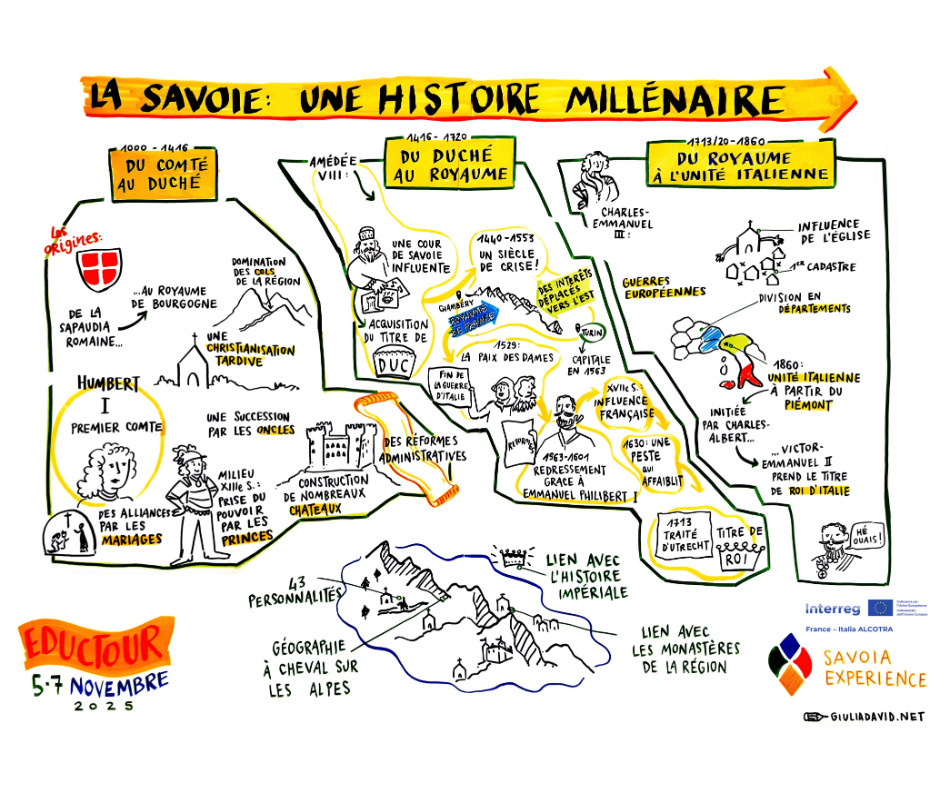 LA SAVOIE: UNE HISTOIRE MILLÉNAIRE
1000 - 1416
DU COMTÉ
AU DUCHÉ
Les
origines:
DE LA
SAPAUDIA
ROMAINE...
...AU ROYAUME
DE BOURGOGNE
DOMINATION
DES COLS
DE LA RÉGION
UNE
CHRISTIANISATION
TARDIVE
HUMBERT
I
PREMIER COMTE
UNE SUCCESSION
PAR LES ONCLES
DES ALLIANCES
PAR LES
MARIAGES
MILIEU
XIIIe S.:
PRISE DU
POUVOIR
PAR LES
PRINCES
CONSTRUCTION
DE NOMBREUX
CHATEAUX
DES RÉFORMES
ADMINISTRATIVES
1416 - 1720
DU DUCHÉ
AU ROYAUME
AMÉDÉE
VIII:
UNE COUR
DE SAVOIE
INFLUENTE
ACQUISITION
DU TITRE DE
DUC
1440-1553
UN SIÈCLE
DE CRISE!
CHAMBÉRY
ROYAUME
DE FRANCE
DES INTERÊTS
DÉPLACÉS
VERS L'EST
TURIN
CAPITALE
EN 1563
1529:
LA PAIX DES DAMES
FIN DE
LA GUERRE
D'ITALIE
REFORMES
1563-1601
REDRESSEMENT
GRACE À
EMMANUEL PHILIBERT I
XVIIe S.:
INFLUENCE
FRANÇAISE
1630: UNE
PESTE
QUI
AFFAIBLIT
1713
TRAITÉ
D'UTRECHT
TITRE DE
ROI
1713/20-1860
DU ROYAUME
À L'UNITÉ ITALIENNE
CHARLES-
EMMANUEL
III:
INFLUENCE
DE L'ÉGLISE
1ER CADASTRE
GUERRES
EUROPÉENNES
DIVISION EN
DÉPARTEMENTS
1860:
UNITÉ ITALIENNE
À PARTIR DU
PIÉMONT
INITIÉE
PAR CHARLES-
ALBERT...
...VICTOR-
EMMANUEL II
PREND LE TITRE
DE ROI D'ITALIE
HÉ
OUAIS!
43
PERSONNALITÉS
GÉOGRAPHIE
À CHEVAL SUR
LES ALPES
LIEN AVEC
L'HISTOIRE
IMPÉRIALE
LIEN AVEC
LES MONASTÈRES
DE LA RÉGION
EDUCTOUR
5·7 NOVEMBRE
2025
Interreg
Cofinancé par
l'Union Européenne
France – Italia ALCOTRA
SAVOIA
EXPERIENCE
GIULIADAVID.NET